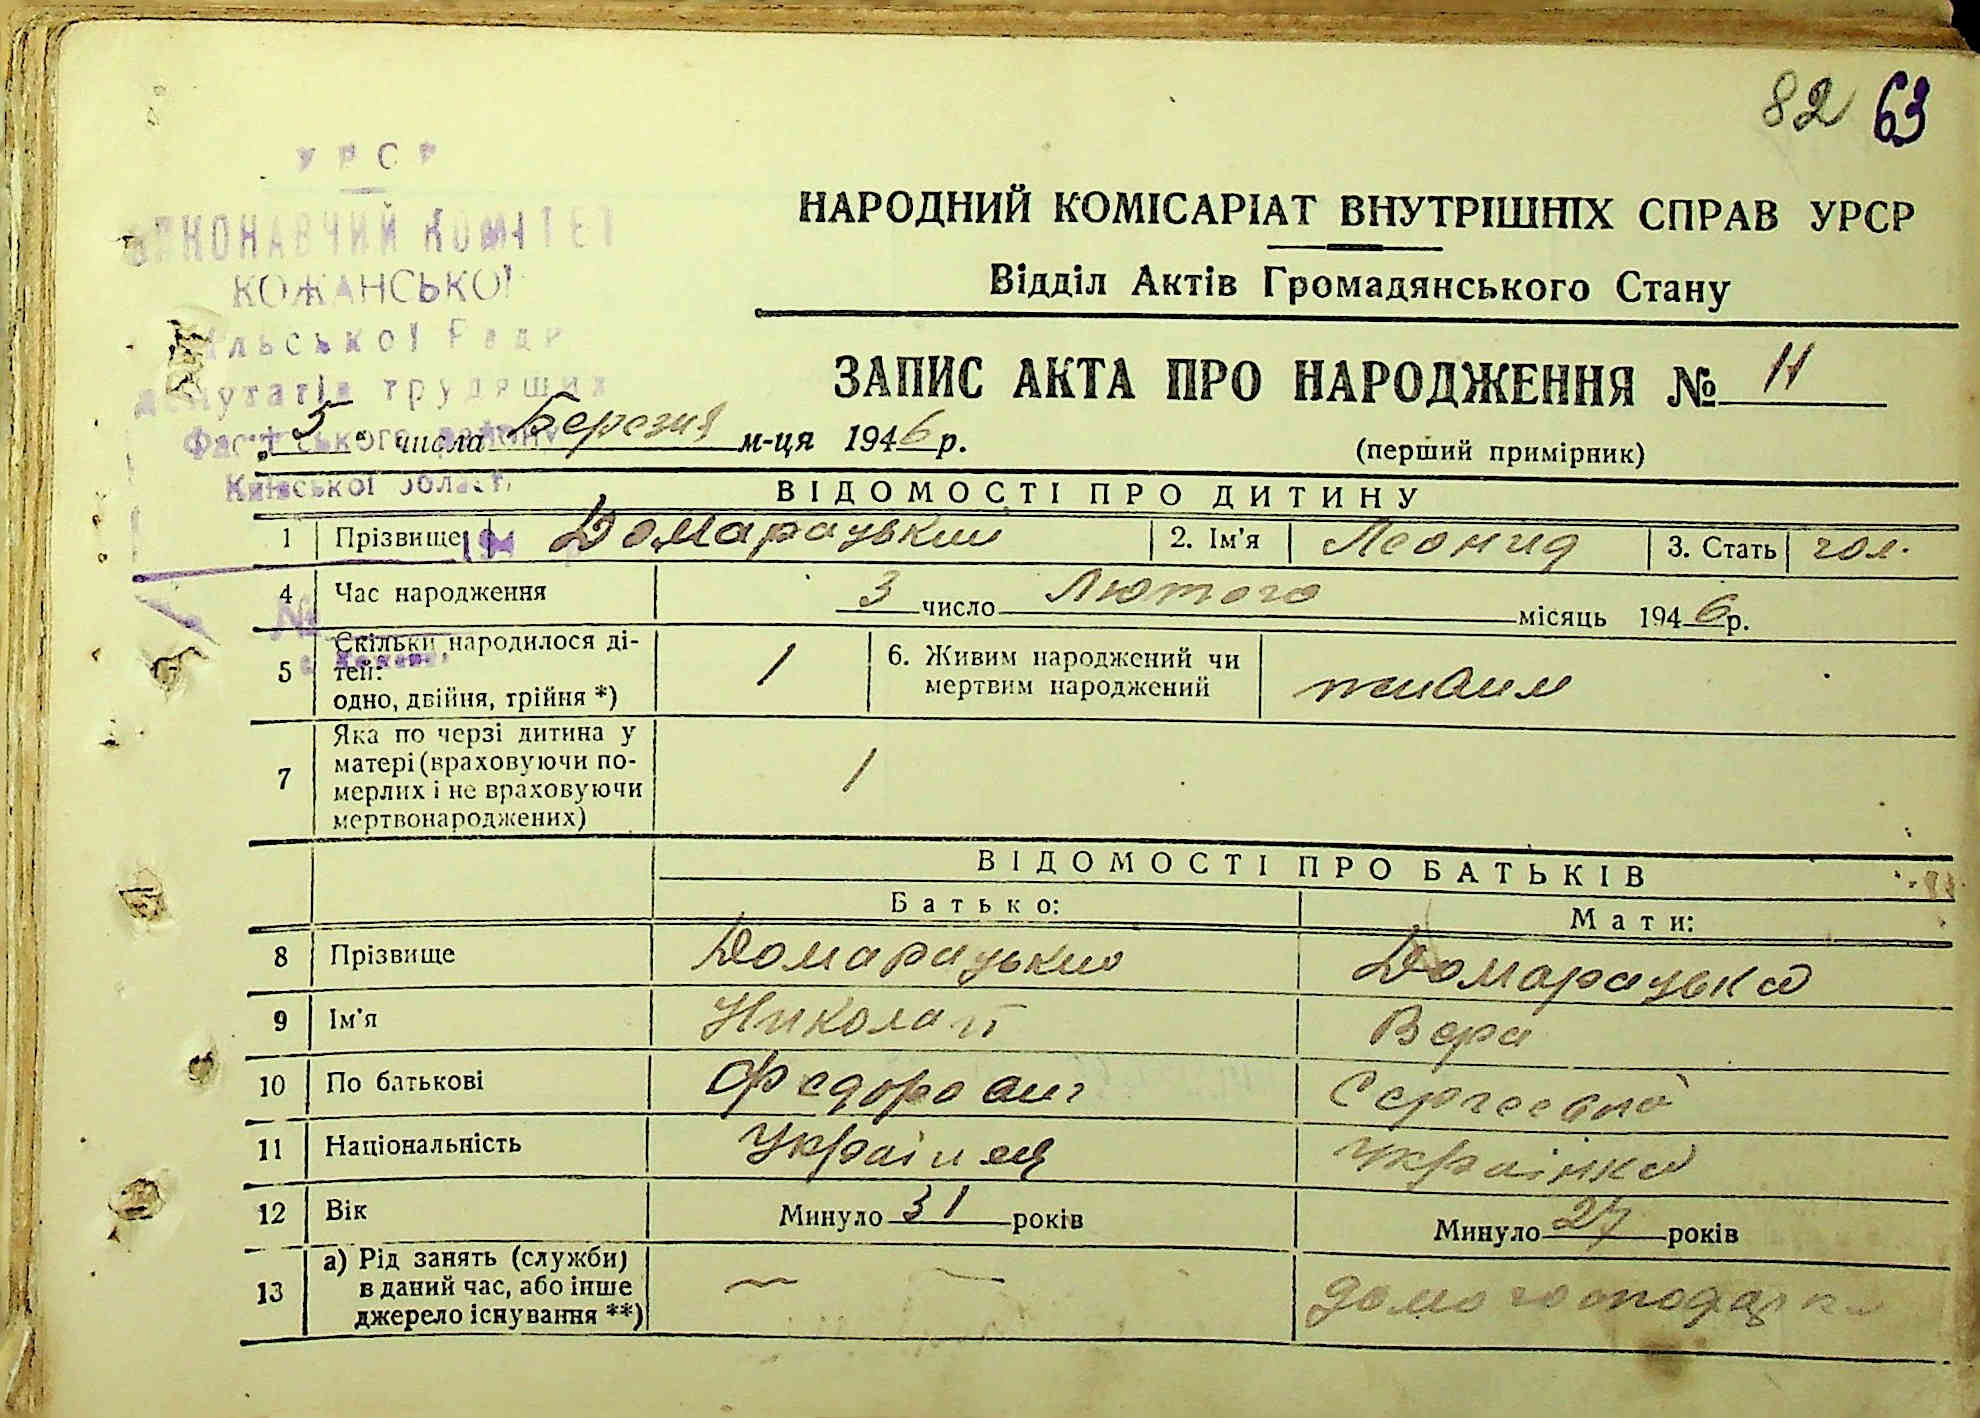 82 63
УРСР
ВИКОНАВЧИЙ КОМІТЕТ
КОЖАНСЬКОЇ
сільської Ради
депутатів трудящих
Фастівського району
Київської області
НАРОДНИЙ КОМІСАРІАТ ВНУТРІШНІХ СПРАВ УРСР
Відділ Актів Громадянського Стану
ЗАПИС АКТА ПРО НАРОДЖЕННЯ № 11
„ 5 " числа Березня м-ця 1946 р.
(перший примірник)
ВІДОМОСТІ ПРО ДИТИНУ
1 Прізвище Домарацький 2. Ім'я Леонид 3. Стать чол.
4 Час народження 3 число Лютого місяць 1946 р.
5 Скільки народилося ді-
тей:
одно, двійня, трійня *) 1
6. Живим народжений чи
мертвим народжений живим
7 Яка по черзі дитина у
матері (враховуючи по-
мерлих і не враховуючи
мертвонароджених) 1
ВІДОМОСТІ ПРО БАТЬКІВ
Батько: Мати:
8 Прізвище Домарацький Домарацька
9 Ім'я Николай Вера
10 По батькові Федорович Сергеевна
11 Національність Українец Українка
12 Вік Минуло 31 років Минуло 27 років
13 а) Рід занять (служби)
в даний час, або інше
джерело існування **) — — домогосподарка